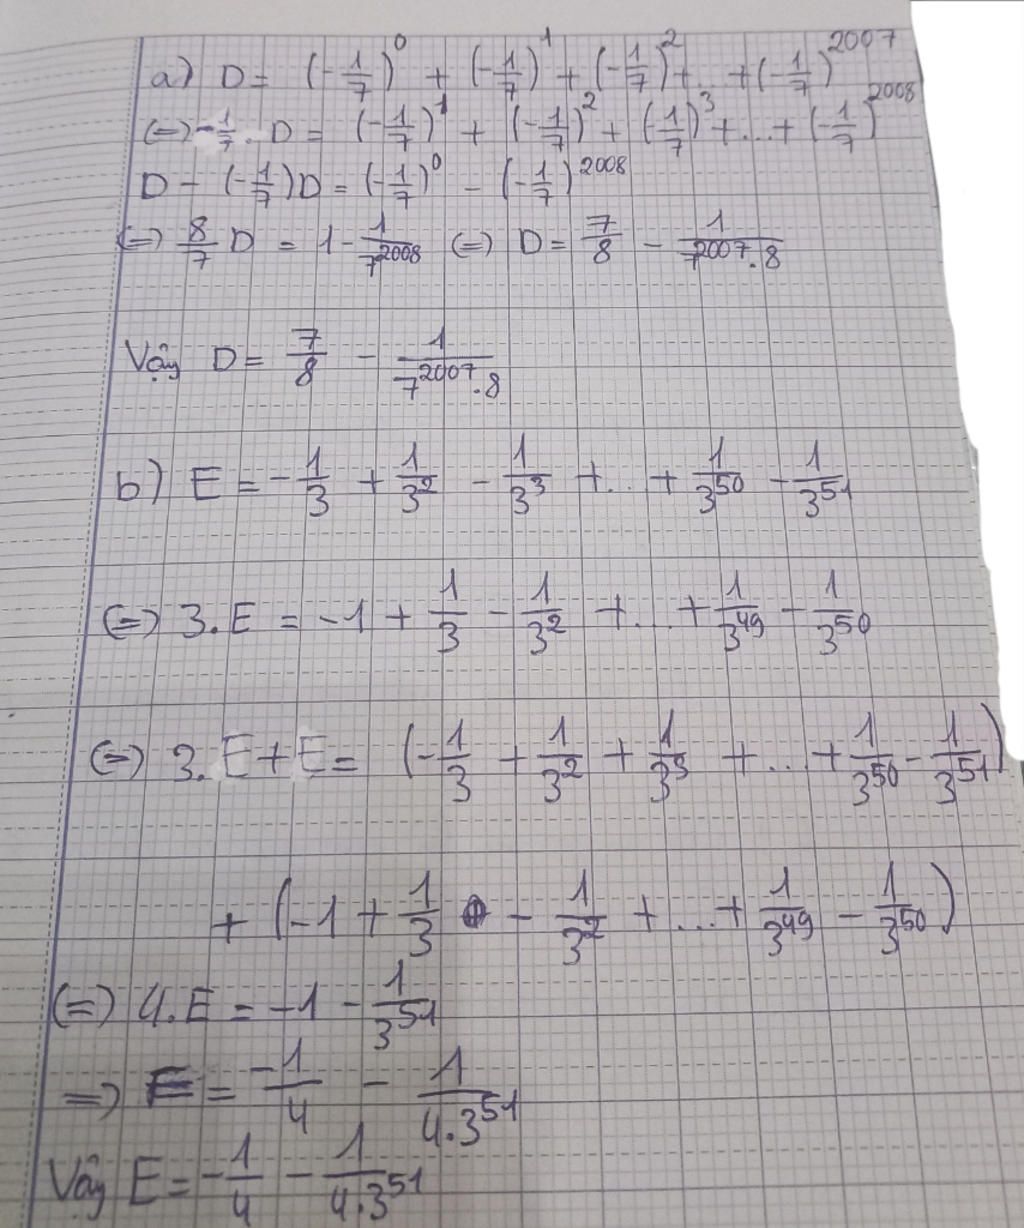 a) D = (-1/7)^0 + (-1/7)^1 + (-1/7)^2 + ... + (-1/7)^2007
(=) -1/7 . D = (-1/7)^1 + (-1/7)^2 + (-1/7)^3 + ... + (-1/7)^2008
D - (-1/7)D = (-1/7)^0 - (-1/7)^2008
(=) 8/7 D = 1 - 1/7^2008 (=) D = 7/8 - 1/(7^2007.8)
Vậy D = 7/8 - 1/(7^2007.8)
b) E = -1/3 + 1/3^2 - 1/3^3 + ... + 1/3^50 - 1/3^51
(=) 3.E = -1 + 1/3 - 1/3^2 + ... + 1/3^49 - 1/3^50
(=) 3.E + E = (-1/3 + 1/3^2 + 1/3^3 + ... + 1/3^50 - 1/3^51)
+ (-1 + 1/3 - 1/3^2 + ... + 1/3^49 - 1/3^50)
(=) 4.E = -1 - 1/3^51
=) E = -1/4 - 1/(4.3^51)
Vậy E = -1/4 - 1/(4.3^51)